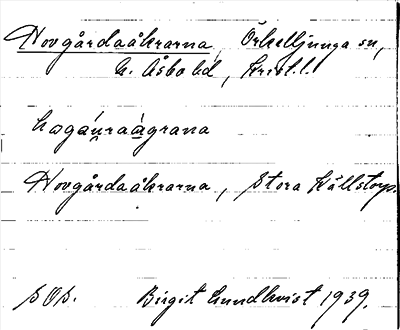 Hovgårdaåkrarna, Örkelljunga sn,
N. Åsbo hd, Krist. l.
Hovgårdaåkrarna, Stora Källstorp.
SOS. Birgit Lundkvist 1939.